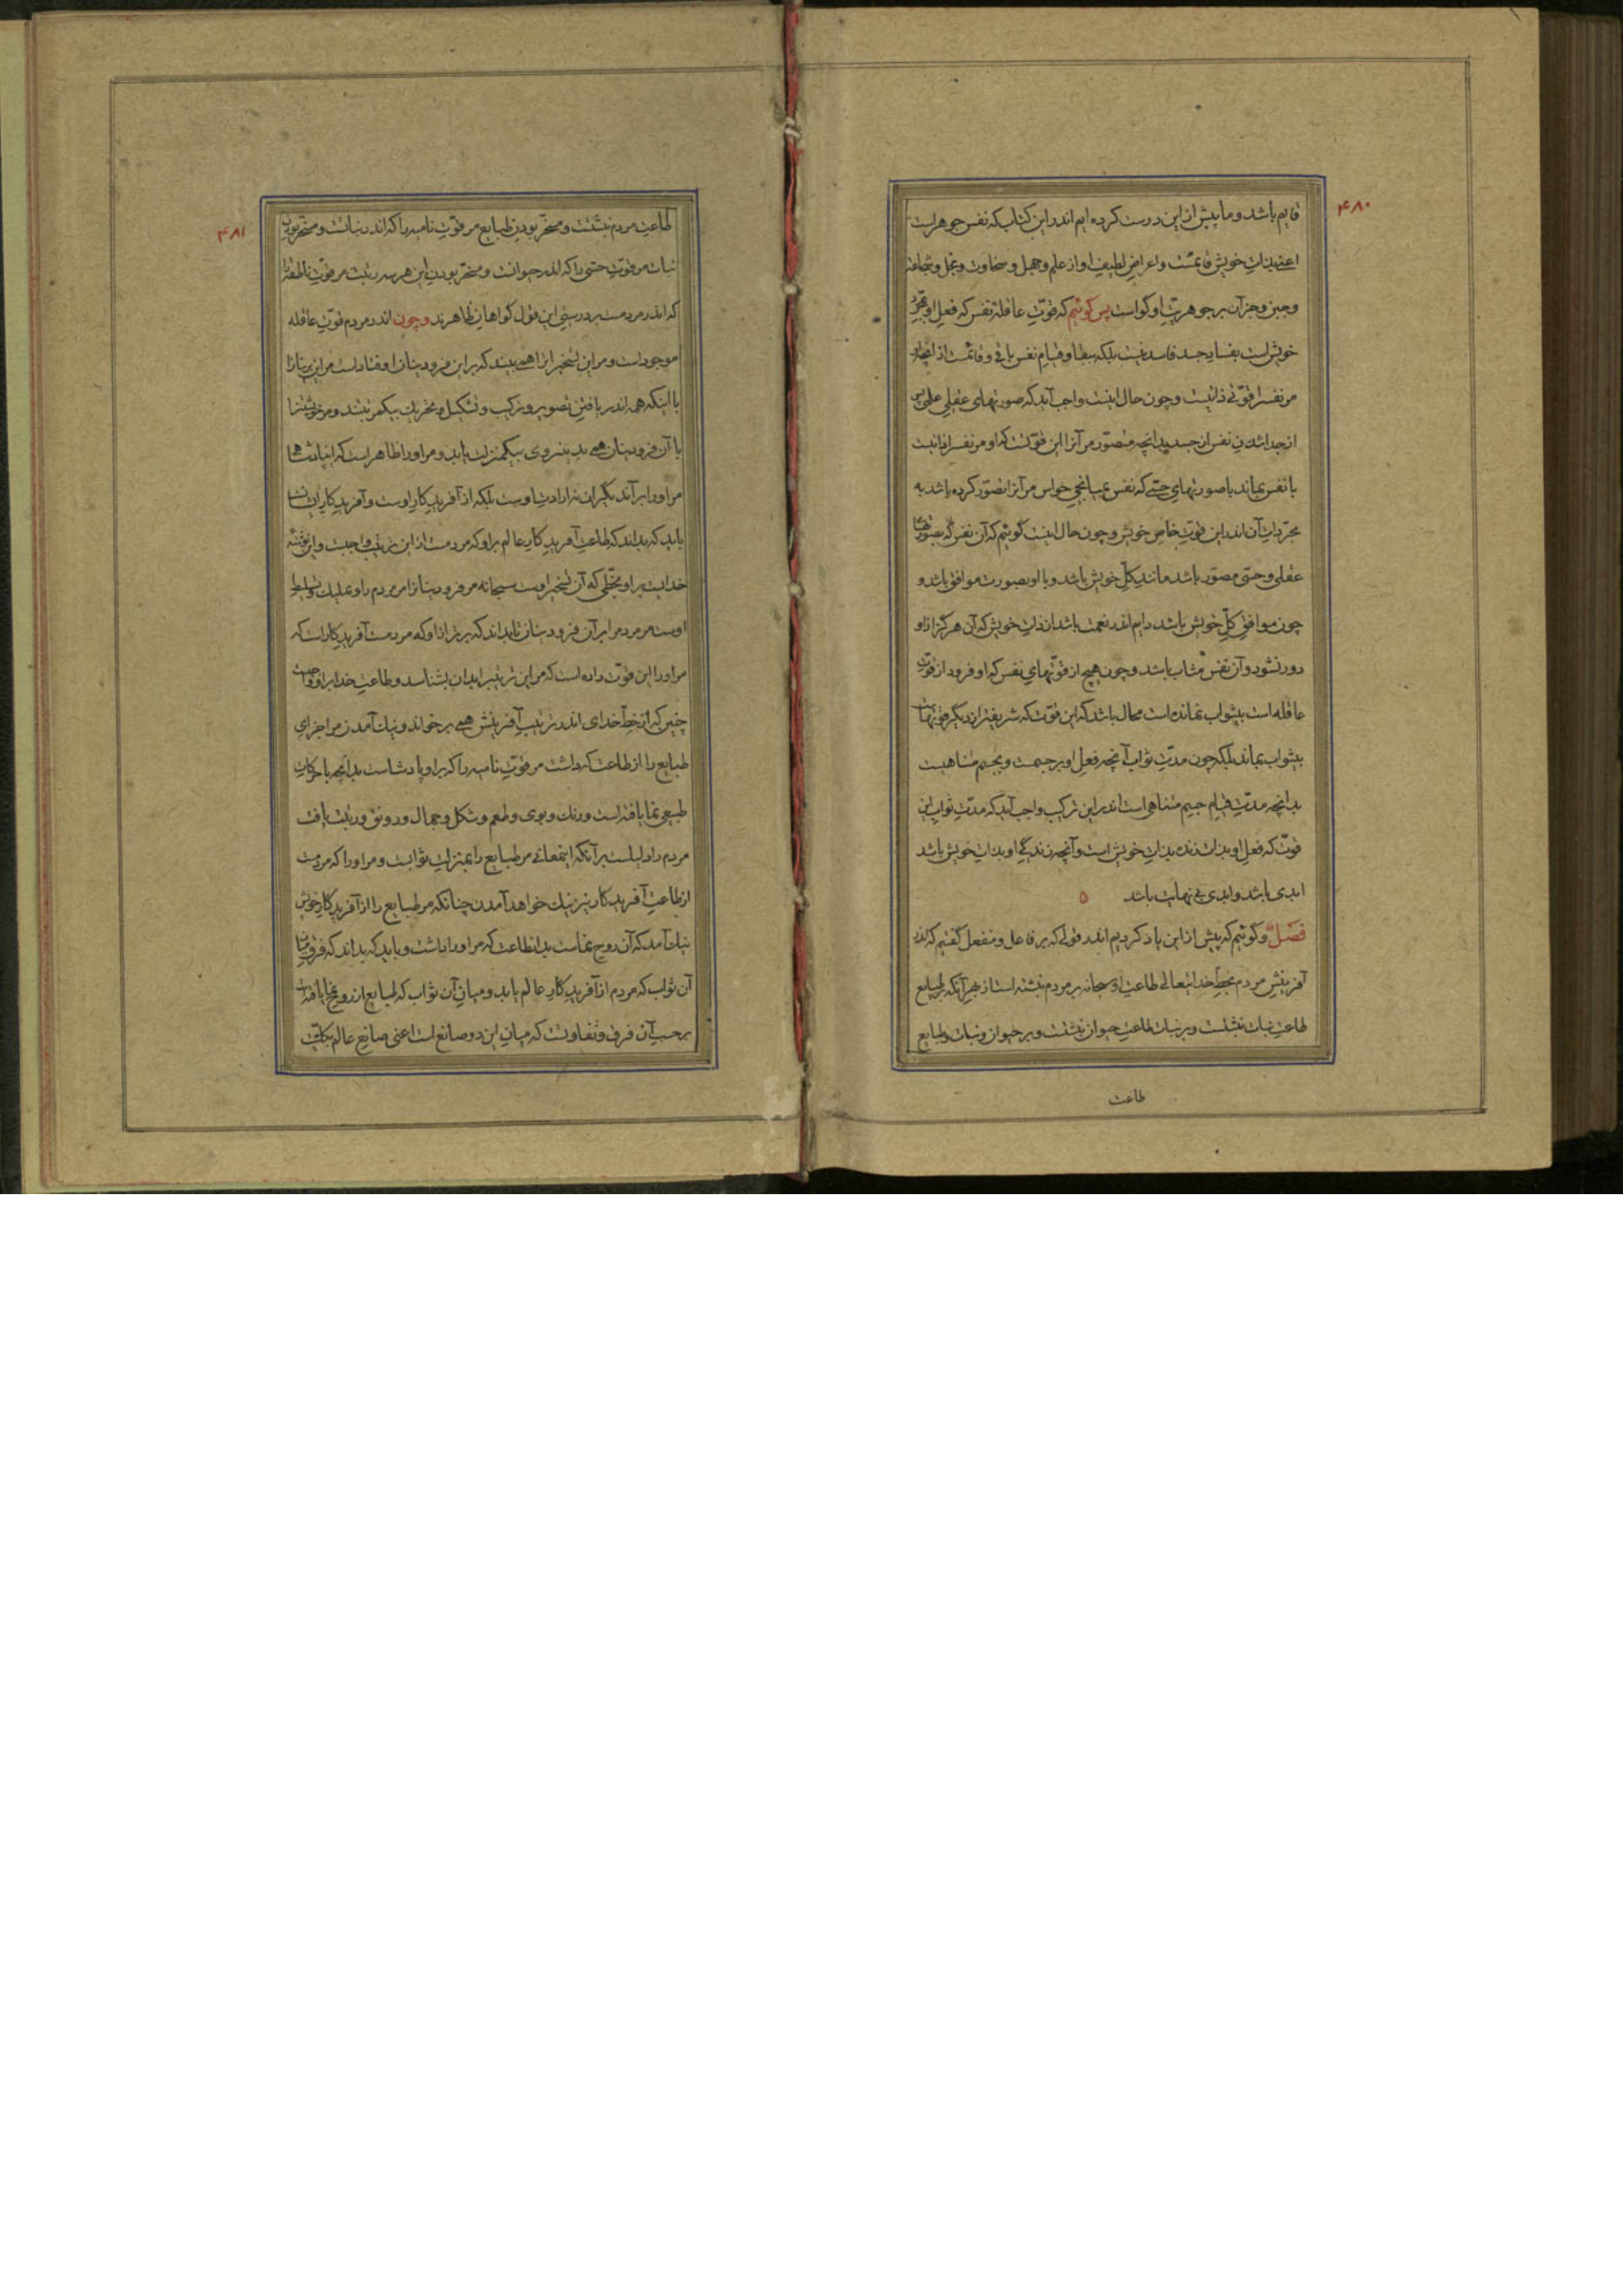 ۴۸۰
قایم باشد و ما پیش از این درست کرده ایم اندر این کتاب که نفس جوهر است
اعنی بذات خویش قائمست و اعراض لطیف او از علم و جهل و سخاوت و بخل و شجاعت
و جبن و جز آن بر جوهریت او گواست پس گوئیم که قوّت عاقلۀ نفس که فعل او بمجرد
خویش است بفساد جسد فاسد نیست بلکه ببقا و قیام نفس باقی و قائمست از آنچه او
مر نفس را قوّتی ذاتیست و چون حال اینست واجب آید که صورتهای عقلی علمی پس
از جدا شدن نفس از جسد بدانچه متصوّر مر آنرا این قوّتست که او مر نفس را ذاتیست
با نفس بماند با صورتهای حسّی که نفس بمیانجی حواس مر آنرا تصوّر کرده باشد به
مجرّدات آن اندر این قوت خاص خویش و چون حال اینست گوئیم که آن نفس که بصورتهای
عقلی و حسّی مصوّر باشد مانند کلّ خویش باشد و با او بصورت موافق باشد و
چون موافق کلّ خویش باشد دایم اندر نعمت باشد از ذات خویش که آن هرگز از او
دور نشود و آن نفس مثاب باشد و چون هیچ از قوّتهای نفس که او فرود از قوّت
عاقله است بیثواب نمانده است محال باشد که این قوّت که شریفتر از دیگر قوّتهاست
بیثواب بماند بلکه چون مدّت ثواب آنچه فعل او بر جسمست و بجسم متناهیست
بدانچه مدّت قیام جسم متناهی است اندر این ترکیب واجب آید که مدّت ثواب این
قوّت که فعل او بذات زنده بذات خویش است و آنچه زندگی او بذات خویش باشد
ابدی باشد و ابدی بی نهایت باشد ۵
فصل و گوئیم که پیش از این یاد کردیم اندر قولی که بر فاعل و منفعل گفتیم که اندر
آفرینش مردم بخط خدایتعالی طاعت او سبحانه بر مردم نبشته است از بهر آنکه بر طبایع
طاعت نبات نبشتست و بر نبات طاعت حیوان نبشتست و بر حیوان و نبات و طبایع
طاعت
۴۸۱
طاعت مردم نبشتست و مسخّر بودن طبایع مر قوّت نامیه را که اندر نباتست و مسخّر بودن
نبات مر قوّت حسّی را که اندر حیوانست و مسخّر بودن این هر سه رتبت مر قوّت ناطقه را
که اندر مردمست بر درستی این قول گواهان ظاهرند و چون اندر مردم قوّت عاقله
موجود است و مر این تسخیر را همی بیند که بر این فرودینان اوفتاد است مر این برینانرا
با اینکه همه اندر یافتن تصویر و ترکیب و تشکیل و تحریک بیکمرتبتند و مر خویشتنرا
با آن فرودینان همی بدینروی بیکمنزلت یابد و مر او را ظاهر است که این پادشاهی
مر او را بر آن دیگران نه از ذات اوست بلکه از آفریدگار اوست و آفریدگار ایشانست
باید که بداند که طاعت آفریدگار عالم بر او که مردمست از این ترتیب واجبست و این نوشته
خدایست بر او بخطّی که آن تسخیر اوست سبحانه مر فرودینانرا مر مردم را و تملیک و تسلیط
اوست مر مردم را بر آن فرودینان تا بداند که برتر از او که مردمست آفریدگار است که
مر او را این قوّت داده است که مر این ترتیب را بدان بشناسد و طاعت خدا بر او واجبست
چنین که از خط خدای اندر ترتیب آفرینش همی بر خواند و نیک آمدن مر اجزای
طبایع را از طاعت که داشت مر قوّت نامیه را که بر او پادشاست بدانچه با حرکات
طبیعی نما یافته است و رنگ و بوی و طعم و شکل و جمال و رونق و زینت یافت
مردم را دلیلست بر آنکه اینمعانی مر طبایع را بمنزلت ثوابست و مر او را که مردمست
از طاعت آفریدگار نیز نیک خواهد آمدن چنانکه مر طبایع را از آفریدگار خویش
نیک آمد که آن روح نماست بدانطاعت که مر او را داشت و باید که بداند که فرق میان
آن ثواب که مردم از آفریدگار عالم یابد و میان آن ثواب که طبایع از روح نما یافته است
بر حسب آن فرق و تفاوتست که میان این دو صانع است اعنی صانع عالم بکلیّت